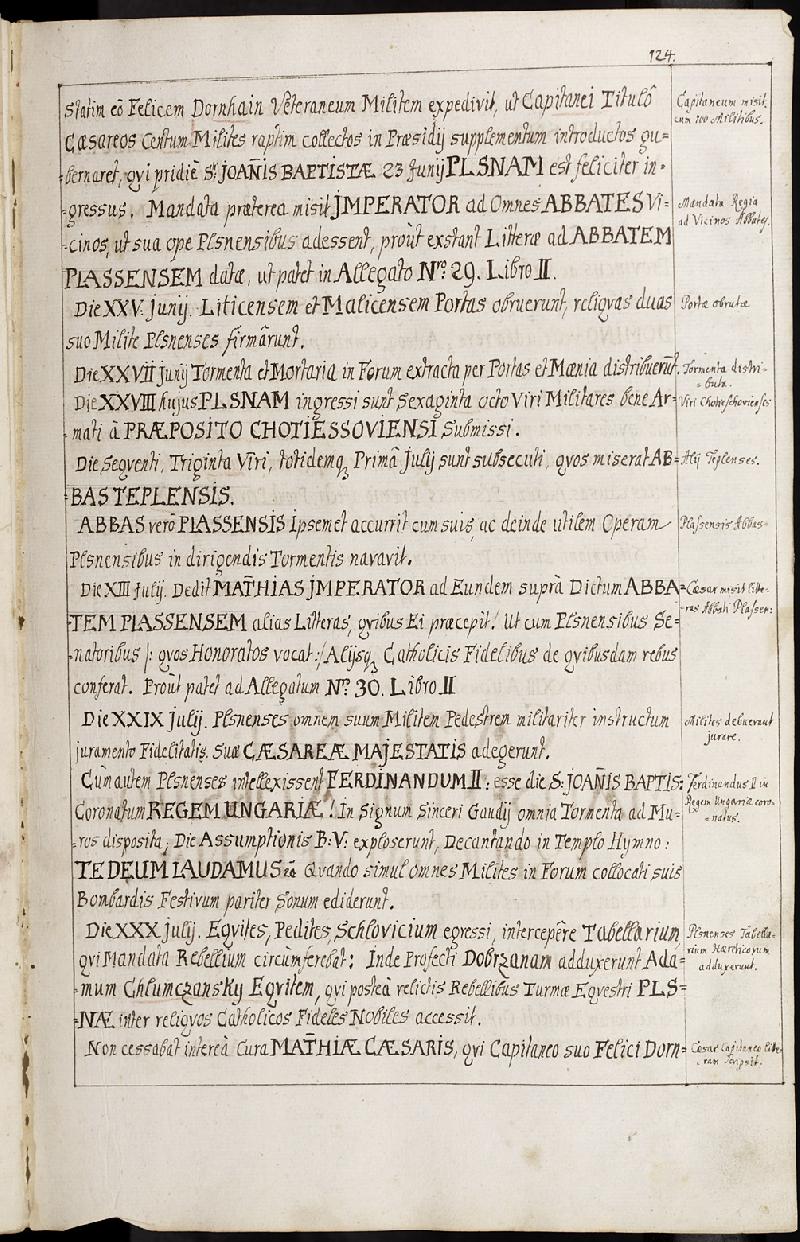 124.
Statim eô Felicem Dornhain Veteraneum Militem expedivit, ut Capitanei Titulô
Cæsareos Centum Milites raptim collectos in Præsidij supplementum introductos gu=
=bernaret, qvi pridiè St: JOANIS BAPTISTÆ 23 Junij PLSNAM est feliciter in=
=gressus. Mandata præterea misit JMPERATOR ad Omnes ABBATES Vi=
=cinos, ut sua ope Plsnensibus adessent, proùt exstant Litteræ ad ABBATEM
PLASSENSEM datæ, ut patet in Allegato Nrº 29. Libro II.
Die XXV. Junij. Liticensem et Malicensem Portas obruerunt, religvas duas
suo Milite Plsnenses firmârunt.
Die XXVII Junij Tormenta et Mortaria in Forum extracta per Portas et Mænia distribuerũt.
Die XXVIII hujus PLSNAM ingressi sunt Sexaginta octo Viri Militares bene Ar=
=mati à PRÆPOSITO CHOTIESSOVIENSI Submissi.
Die Seqventi, Triginta Viri, totidemq, Primâ Julij sunt subsecuti, qvos miserat AB=
=BAS TEPLENSIS.
ABBAS verò PLASSENSIS Ipsemet accurrit cum suis, ac deinde utilem Operam
Plsnensibus in dirigendis Tormentis navavit.
Die XIII Julij. Dedit MATHIAS JMPERATOR ad Eundem suprà Dictum ABBA=
=TEM PLASSENSEM alias Litteras, qvibus Ei præcepit! Ut cum Plsnensibus Se=
=natoribus /: qvos Honoratos vocat :/ Alijsq, Catholicis Fidelibus de qvibusdam rebus
conferat. Proùt patet ad Allegatum Nº 30. Libro II
Die XXIX Julij. Plsnenses omnem suum Militem Pedestrem militariter instructum
juramento Fidelitatis Suæ CÆSAREÆ MAJESTATIS adegerunt.
Cùm autem Plsnenses intellexissent FERDINANDUM II: esse die S: JOANIS BAPTIS:
Coronatum REGEM UNGARIÆ! In Signum Sinceri Gaudij omnia Tormenta ad Mu=
=ros disposita, Die Assumptionis B: V: exploserunt, Decantando in Templo Hymno:
TE DEUM LAUDAMUS Qvando simul omnes Milites in Forum collocati suis
Bombardis Festivum pariter Sonum ediderunt.
Die XXX Julij. Eqvites, Pedites, Schlovicium egressi, intercepêre Tabellarium,
qvi Mandata Rebellium circùmferebat: Inde Profecti Dobrzanam adduxerunt Ada=
=mum Chlumczansky Eqvitem, qvi posteà relictis Rebellibus Turmæ Eqvestri PLS=
=NÆ inter religvos Catholicos Fideles Nobiles accessit.
Non cessabat intereà Cura MATHIÆ CÆSARIS, qvi Capitaneo suo Felici Dorn=
Capitaneum misit
cum 100 Militibus.
Mandata Regia
ad Vicinos Abbates.
Portæ obrutæ
Tormenta distri=
=buta.
Viri Chotieschovienses
Alij Teplenses.
Plassensis Abbas
Cæsar misit litte=
=ras Abbati Plassen:
Milites debuerunt
jurare.
Ferdinandus II in
Regem Ungariæ coro=
=natus.
Plsnenses Tabella=
=rium Hæreticorum
adduxerunt.
Cæsar Capitaneo litte=
=ram scripsit.